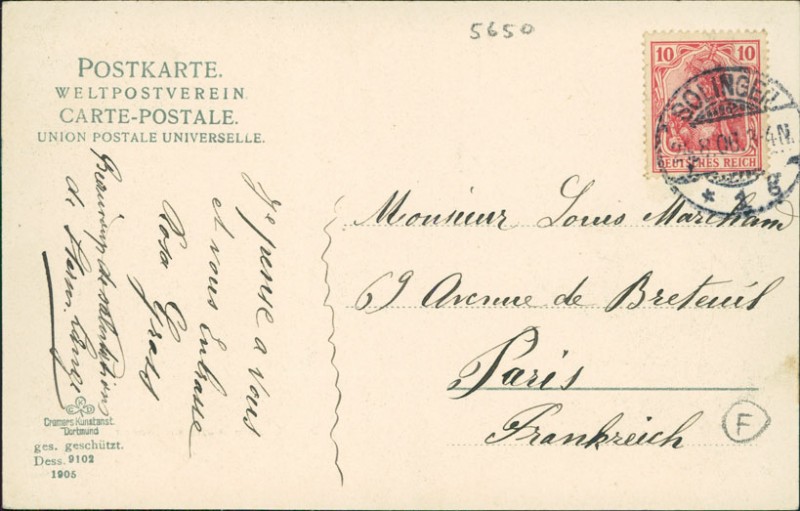 5650
POSTKARTE.
WELTPOSTVEREIN.
CARTE-POSTALE.
UNION POSTALE UNIVERSELLE.
10 10
DEUTSCHES REICH
SOLINGEN
3-4N.
* 1 g
Monsieur Louis Marcham
69 Avenue de Breteuil
Paris
Frankreich
F
Je pense a vous
et vous Embrasse
Rosa Grass
Beaucoup de salutation
de Lange
Cramers Kunstanst.
Dortmund
ges. geschützt.
Dess. 9102
1905